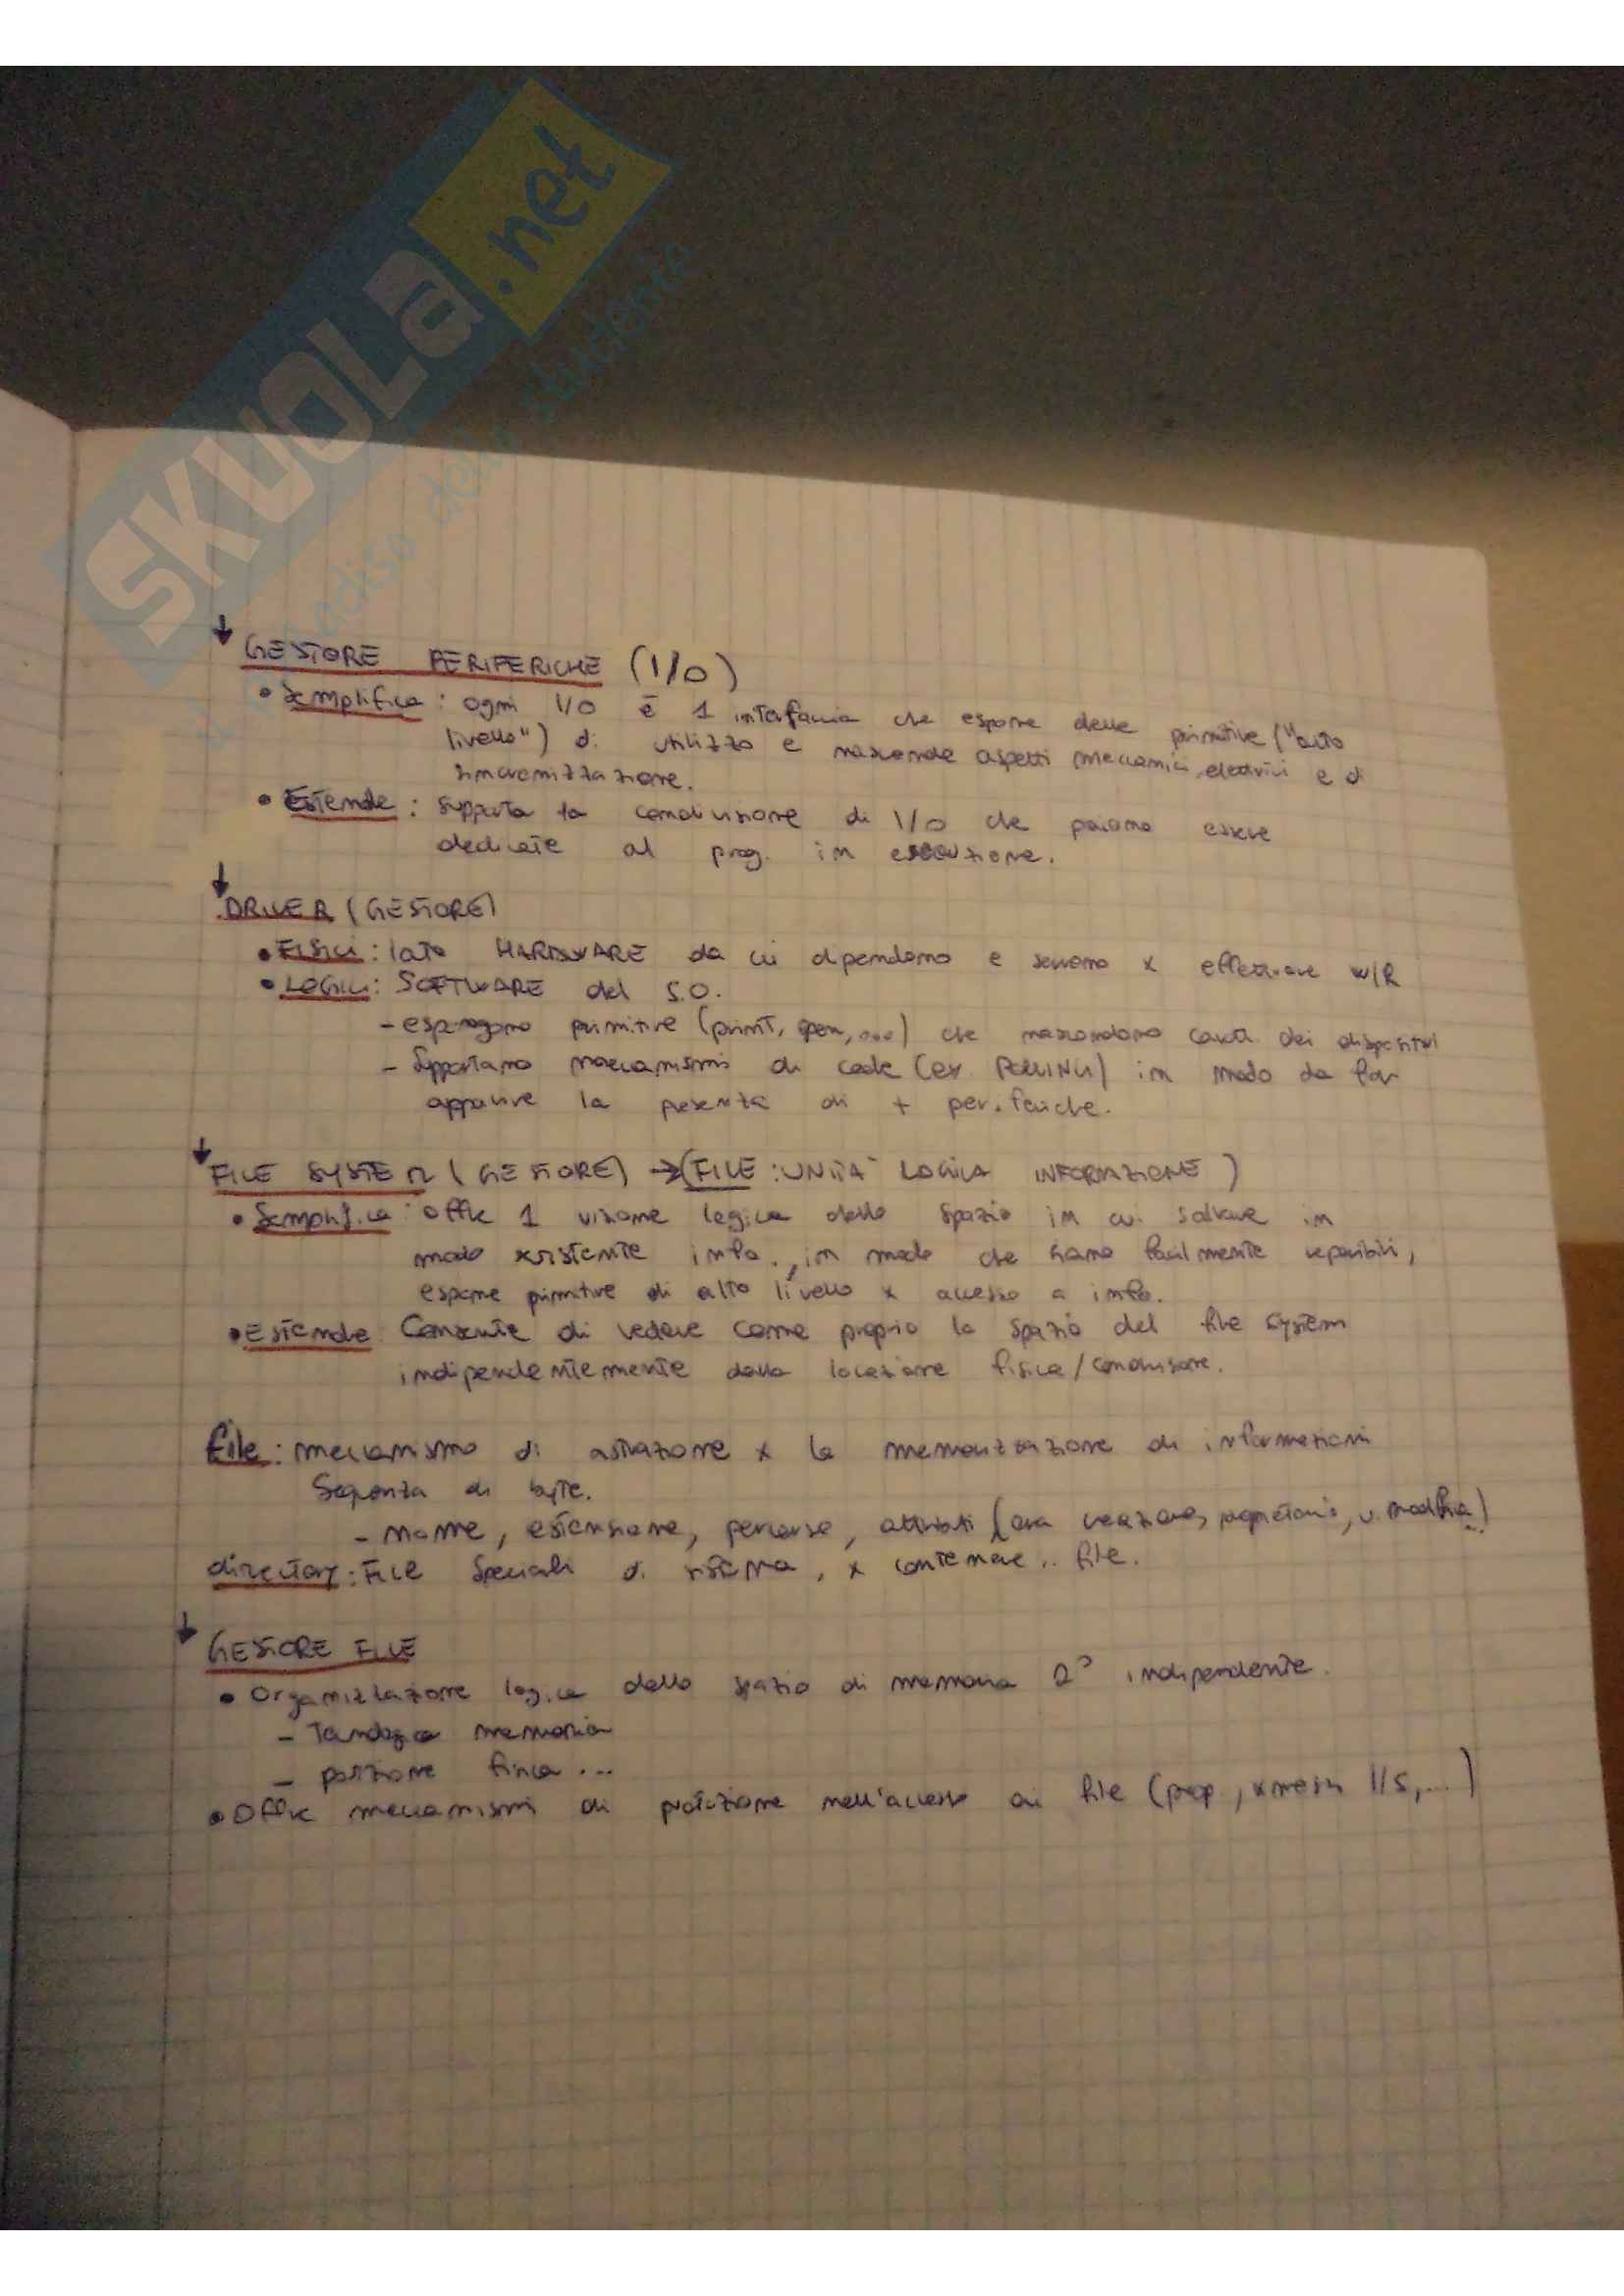 SKUOLA.net
↓ GESTORE PERIFERICHE (I/O)
• Semplifica : ogni I/O è 1 interfaccia che espone delle primitive ("alto
livello") di utilizzo e nasconde aspetti meccanici, elettrici e di
sincronizzazione.
• Estende : supporta la condivisione di I/O che possono essere
dedicate al prog. in esecuzione.
↓ DRIVER (GESTORE)
• FISICI : lato HARDWARE da cui dipendono e servono x effettuare W/R
• LOGICI : SOFTWARE del S.O.
- espongono primitive (print, open, ...) che nascondono caratt. dei dispositivi
- Supportano meccanismi di code (es. POLLING) in modo da far
apparire la presenza di + periferiche.
↓ FILE SYSTEM (GESTORE) → (FILE : UNITÀ LOGICA INFORMAZIONE )
• Semplifica : offre 1 visione logica dello spazio in cui salvare in
modo info., in modo che siano facilmente reperibili,
espone primitive di alto livello x accesso a info.
• Estende Consente di vedere come proprio lo spazio del file system
indipendentemente dalla locazione fisica/condivisione.
file : meccanismo di astrazione x la memorizzazione di informazioni
Sequenza di byte.
- nome, estensione, percorso, attributi (ora creazione, proprietario, u. modifica)
directory : FILE speciali di sistema, x contenere .. file.
↓ GESTORE FILE
• Organizzazione logica dello spazio di memoria 2° indipendente.
- memoria
- posizione fisica ...
• Offre meccanismi di protezione nell'accesso ai file (prop, I/S, ...)